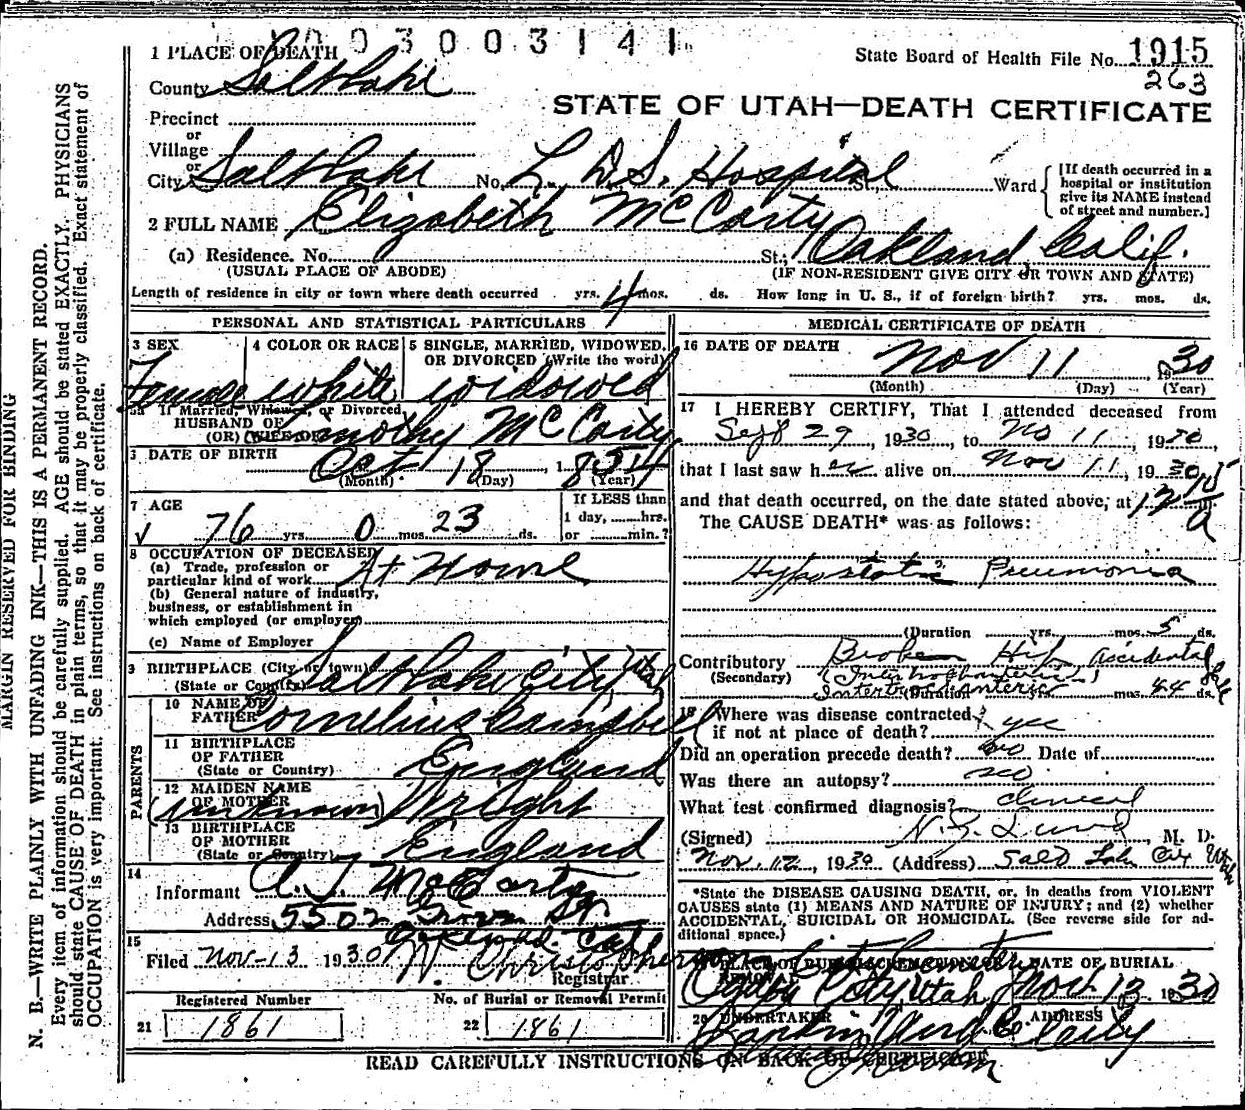 003003141
1 PLACE OF DEATH
State Board of Health File No. 1915
263
County Salt Lake
STATE OF UTAH—DEATH CERTIFICATE
Precinct
or
Village
or
City Salt Lake No. L. D. S. Hospital St., Ward
[If death occurred in a hospital or institution give its NAME instead of street and number.]
2 FULL NAME Elizabeth McCarty
(a) Residence. No. St., Oakland Calif.
(USUAL PLACE OF ABODE) (IF NON-RESIDENT GIVE CITY OR TOWN AND STATE)
Length of residence in city or town where death occurred yrs. 4 mos. ds. How long in U. S., if of foreign birth? yrs. mos. ds.
PERSONAL AND STATISTICAL PARTICULARS
3 SEX Female
4 COLOR OR RACE white
5 SINGLE, MARRIED, WIDOWED, OR DIVORCED (Write the word) widowed
5a If Married, Widowed, or Divorced
HUSBAND OF
(OR) WIFE OF Timothy McCarty
6 DATE OF BIRTH Oct 18, 1854
(Month) (Day) (Year)
7 AGE
76 yrs. 0 mos. 23 ds.
If LESS than
1 day, hrs.
or min.?
8 OCCUPATION OF DECEASED
(a) Trade, profession or
particular kind of work At Home
(b) General nature of industry,
business, or establishment in
which employed (or employer)
(c) Name of Employer
9 BIRTHPLACE (City or town) Salt Lake City Utah
(State or Country)
PARENTS
10 NAME OF
FATHER Cornelius
11 BIRTHPLACE
OF FATHER England
(State or Country)
12 MAIDEN NAME
OF MOTHER (unknown) Wright
13 BIRTHPLACE
OF MOTHER England
(State or Country)
14
Informant A. J. McCarty
Address 5502
Oakland. Cal
15
Filed Nov-13 1930 Registrar
Registered Number
21 1861
No. of Burial or Removal Permit
22 1861
MEDICAL CERTIFICATE OF DEATH
16 DATE OF DEATH Nov 11 1930
(Month) (Day) (Year)
17 I HEREBY CERTIFY, That I attended deceased from
Sept 29, 1930, to No 11, 1930,
that I last saw her alive on Nov 11, 1930
and that death occurred, on the date stated above, at 12 15 a m.
The CAUSE DEATH* was as follows:
Hypostatic Pneumonia
(Duration yrs. mos. 5 ds.
Contributory Broken Hip Accidental fall
(Secondary) (Intertrochanteric)
(Duration mos. 44 ds.
18 Where was disease contracted
if not at place of death? yes
Did an operation precede death? no Date of
Was there an autopsy? no
What test confirmed diagnosis? clinical
(Signed) M. D.
Nov. 12, 1930 (Address) Salt Lake City Utah
*State the DISEASE CAUSING DEATH, or, in deaths from VIOLENT
CAUSES state (1) MEANS AND NATURE OF INJURY; and (2) whether
ACCIDENTAL, SUICIDAL OR HOMICIDAL. (See reverse side for ad-
ditional space.)
19 PLACE OF BURIAL, CREMATION OR REMOVAL City Cemetery
City, Utah
DATE OF BURIAL
Nov. 13 1930
20 UNDERTAKER
ADDRESS
READ CAREFULLY INSTRUCTIONS ON BACK OF CERTIFICATE
MARGIN RESERVED FOR BINDING
N. B.—WRITE PLAINLY WITH UNFADING INK—THIS IS A PERMANENT RECORD.
Every item of information should be carefully supplied. AGE should be stated EXACTLY. PHYSICIANS
should state CAUSE OF DEATH in plain terms, so that it may be properly classified. Exact statement of
OCCUPATION is very important. See instructions on back of certificate.